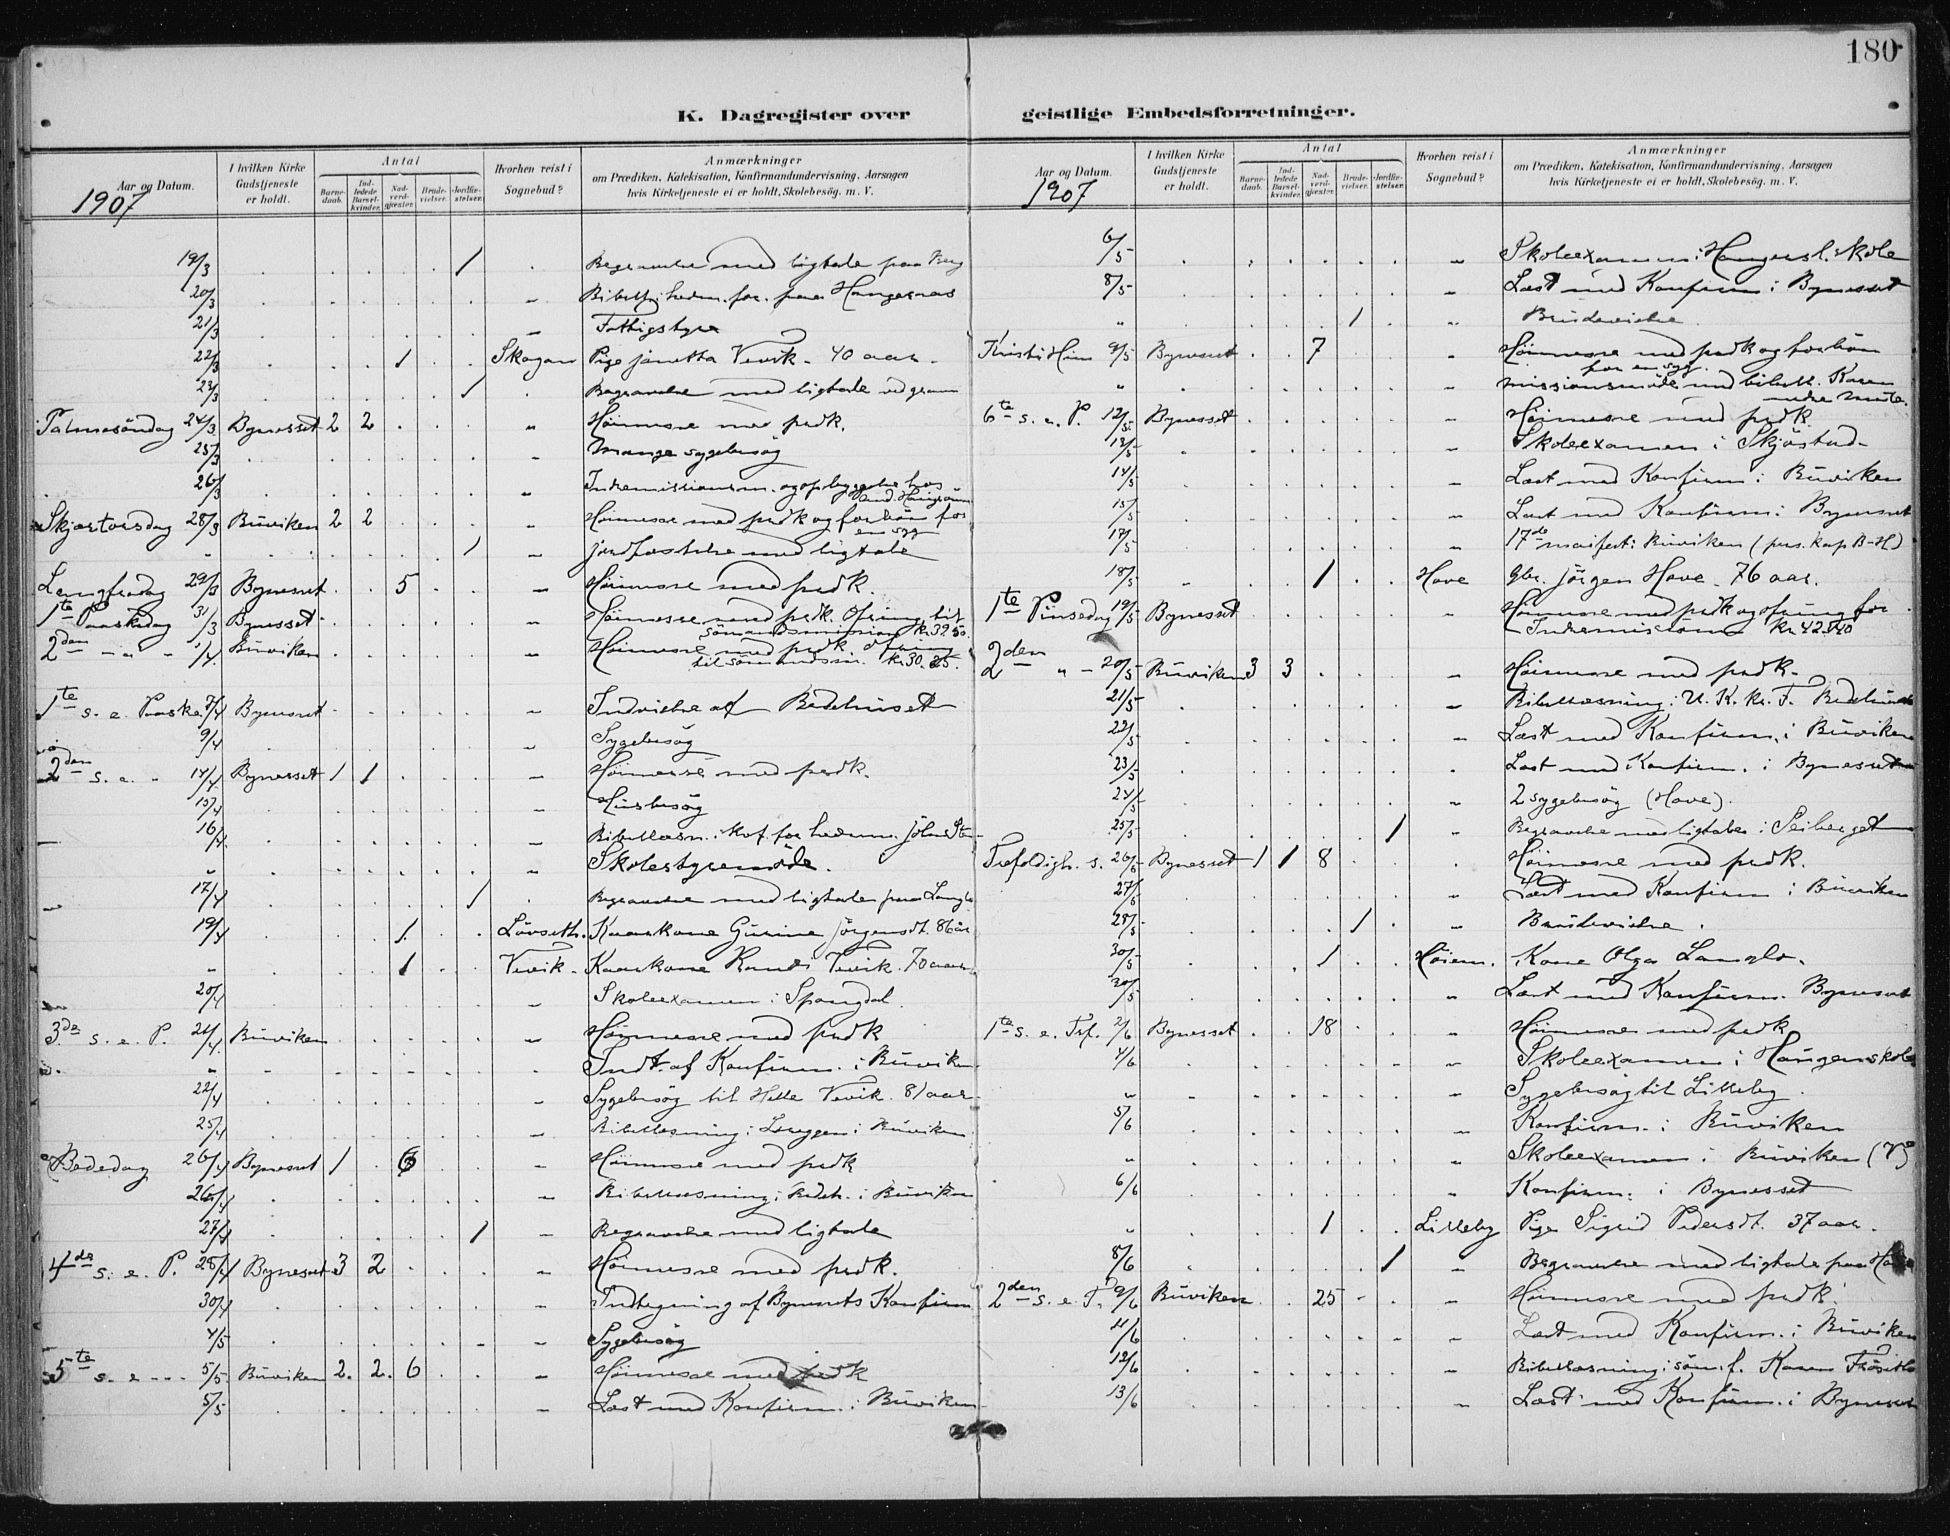 180
K. Dagregister over
geistlige Embedsforretninger.
Aar og Datum.
1907
I hvilken Kirke Gudstjeneste er holdt.
Antal
Barne-daab.
Ind-ledede Barsel-kvinder.
Nad-verd-gjæster.
Brude-vielser.
Jordfæ-stelser.
Hvorhen reist i Sognebud?
Anmærkninger
om Prædiken, Katekisation, Konfirmandundervisning, Aarsagen
hvis Kirketjeneste ei er holdt, Skolebesøg. m. V.
19/3 1 Begravelse med ligtale paa Berg
20/3 for. paa Hangesnas
21/3 Fattigstyre
22/3 1 Skogan Pige Vevik. 40 aar.
23/3 1 Begravelse med ligtale
Palmesöndag 24/3 Bynesset 2 2 Höimesse med prdk.
25/3 Mange sygebesøg
26/3 Indremissionsm. og opbyggelse hos
Skjærtorsdag 28/3 Büviken 2 2 Höimesse med prdk og forbön for
en syg
" 1 jordfæstelse med ligtale
Langfredag 29/3 Bynesset 5 Höimesse med prdk.
1te Paaskedag 31/3 Bynesset Höimesse med prdk. Ofring til
sömandsmission kr. 32.50.
2den " " 1/4 Büviken Höimesse med prdk. Ofring
til sömandsm. kr. 30.25.
1te s. e. Paaske 7/4 Bynesset Indvielse af Bedehuset
9/4 Sygebesög
2den s. e. " 14/4 Bynesset 1 1 Höimesse med prdk.
15/4 Husbesög
16/4 Bibellæsn.
" Skolestyremöde.
17/4 1 Begravelse med ligtale paa
19/4 1. Lövseth. Kaarkone Gurine Jörgensdt. 86 aar
" 1 Vevik. Kaarkone Vevik. 70 aar.
20/4 Skoleexamen i Spongdal.
3de s. e. P. 21/4 Büviken Höimesse med prdk
" Indt. af Konfirm. i Büviken
22/4 Sygebesög til Vevik. 81 aar.
25/4 Bibellæsning i Büviken
Bededag 26/4 Bynesset 1 Höimesse med prdk
26/4 Bibellæsning i Bedeh. i Büviken
27/4 1 Begravelse med ligtale
4de s. e. P. 28/4 Bynesset 3 2 Höimesse med prdk.
30/4 Indtegning af Bynesets Konfirm
4/5 Sygebesög
5te s. e. " 5/5 Büviken 2. 2. 6 Höimesse med prdk
5/5 Læst med Konfirm. i Büviken
Aar og Datum.
1907
I hvilken Kirke Gudstjeneste er holdt.
Antal
Barne-daab.
Ind-ledede Barsel-kvinder.
Nad-verd-gjæster.
Brude-vielser.
Jordfæ-stelser.
Hvorhen reist i Sognebud?
Anmærkninger
om Prædiken, Katekisation, Konfirmandundervisning, Aarsagen
hvis Kirketjeneste ei er holdt, Skolebesøg. m. V.
6/5 Skoleexamen i skole
8/5 Læst med Konfirm i Bynesset
" 1 Brudevielse
Kristi Him 9/5 Bynesset 7 Höimesse med prdk og forbön
for en syg.
" missionsmöde med bibell. Karen
6te s. e. P. 12/5 Bynesset Höimesse med prdk.
13/5 Skoleexamen i Skjöstad
14/5 Læst med Konfirm i Büviken
15/5 Læst med Konfirm i Bynesset
17/5 17de maifest i Büviken
18/5 1 Hove Gbr. Jörgen Hove. 76 aar.
1te Pinsedag 19/5 Bynesset Höimesse med prdk og ofring for
Indremission kr 42.40
2den " " 20/5 Büviken 3 3 Höimesse med prdk.
21/5 Bibellæsning i U. K. kr. F.
22/5 Læst med Konfirm. i Büviken
23/5 Læst med Konfirm. i Bynesset
24/5 2 sygebesög (Hove).
25/5 1 Begravelse med ligtale i
Trefoldigh. s. 26/5 Bynesset 1 1 8 Höimesse med prdk.
27/5 Læst med Konfirm i Büviken
28/5 1 Brudevielse.
30/5 1 Höiem. Kone Olga Langlo.
30/5 Læst med Konfirm. Bynesset
1te s. e. Trf. 2/6 Bynesset 18 Höimesse med prdk
4/6 Skoleexamen i Haugen skole
" Sygebesög til Lilleby.
5/6 Konfirm. i Büviken
" Skoleexamen i Büviken
6/6 Konfirm. i Bynesset
" 1 Lilleby Pige Sigrid Pedersdt. 37 aar.
8/6 1 Begravelse med ligtale paa
2den s. e. T. 9/6 Büviken 25 Höimesse med prdk
11/6 Læst med Konfirm. i Büviken
12/6 Bibellæsning i Karen
13/6 Læst med Konfirm. i Bynesset